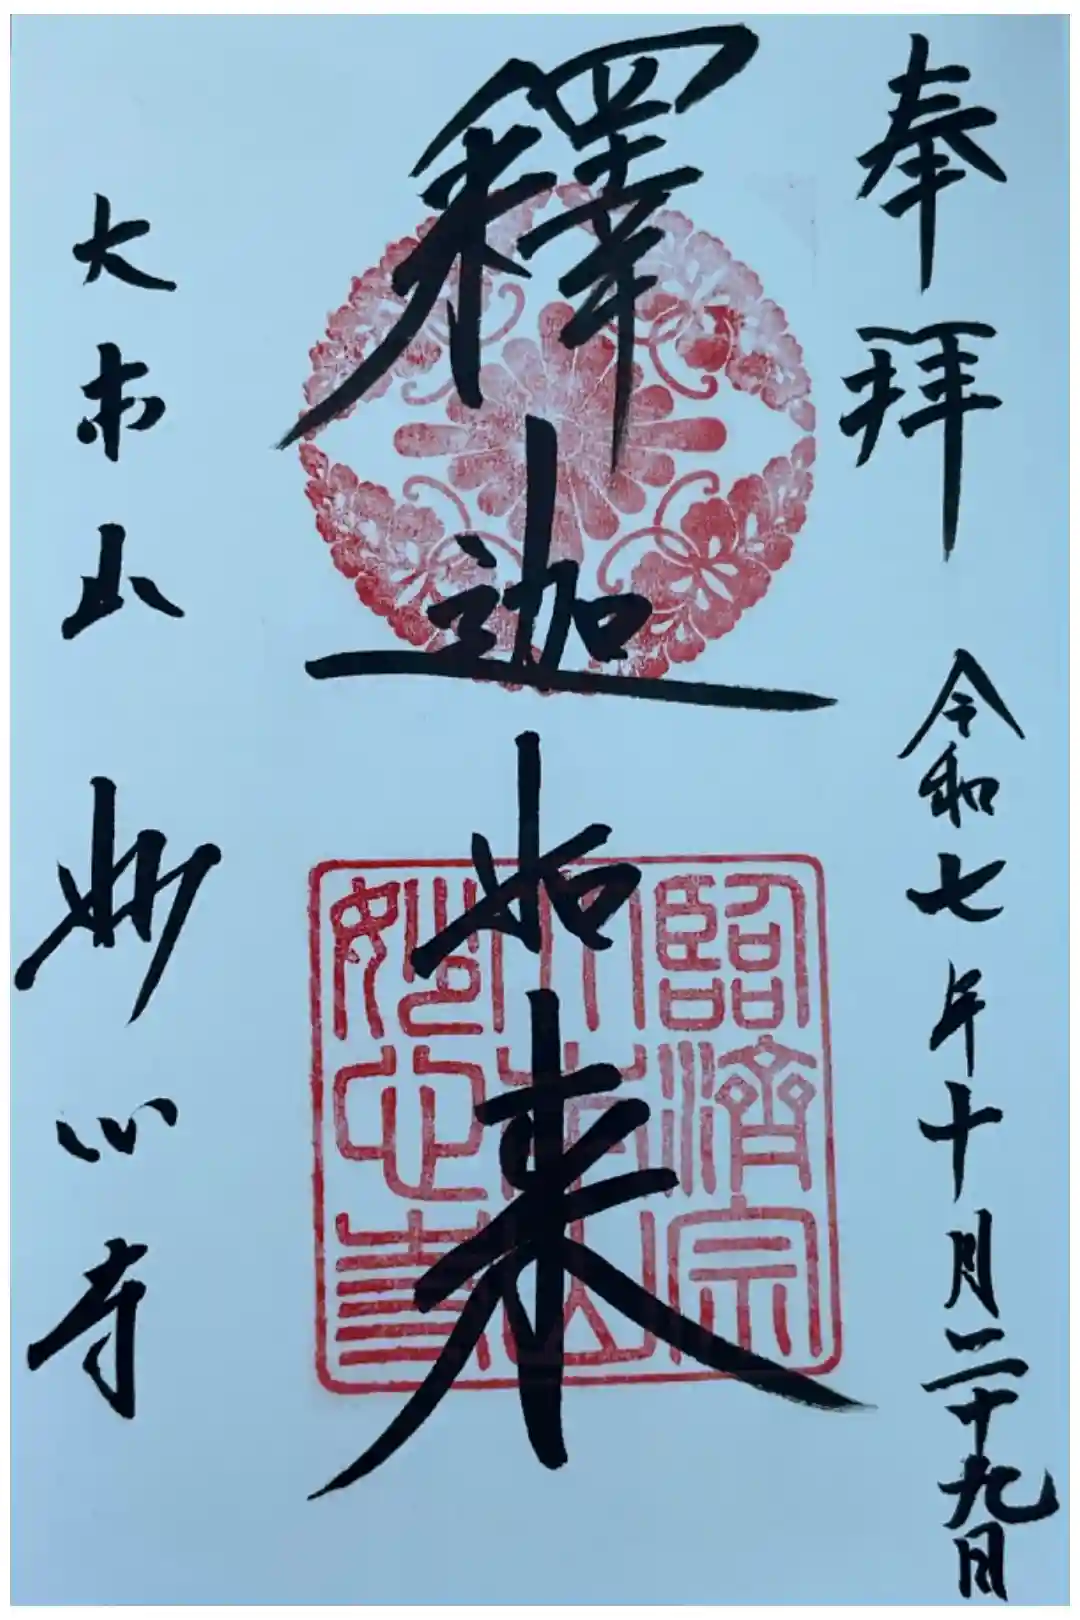 奉拜
令和七年十月二十九日
釋迦如来
大本山
妙心寺
臨濟宗
大本山
妙心寺